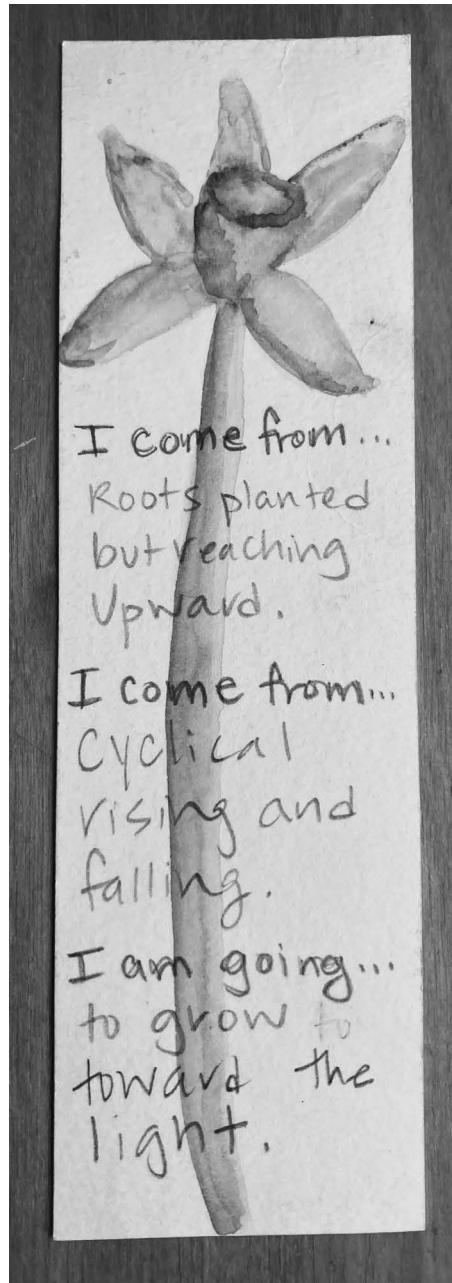 I come from...
Roots planted
but reaching
Upward.
I come from...
Cyclical
rising and
falling.
I am going...
to grow to
toward the
light.